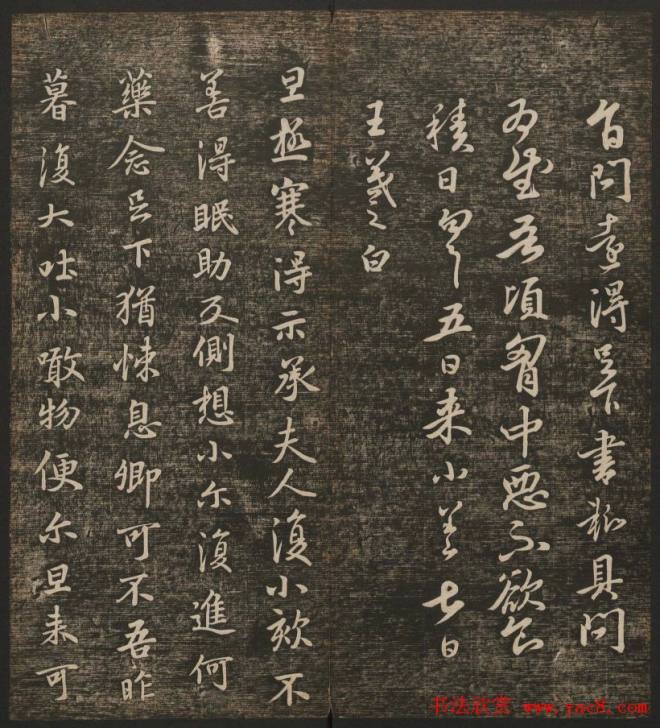 問 得足下書 具問
為慰吾頃胷中惡不欲食
積日勿勿五日来小差
王羲之白
旦極寒得示承夫人復小欬不
善得眠助反側想小尔復進何
藥念足下猶悚息卿可不吾昨
暮復大吐小噉物便尔旦来可
书法欣赏 www.yac8.com